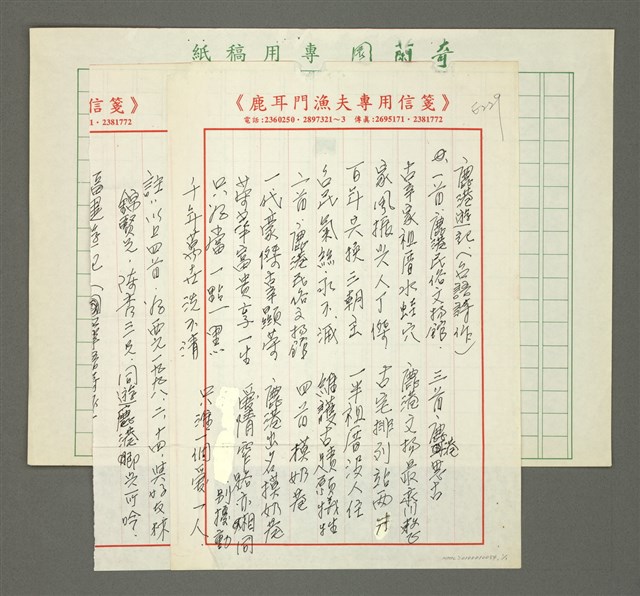 奇蘭園專用稿紙
《鹿耳門漁夫專用信箋》
電話:2360250·2897321~3 傳真:2695171·2381772
E229
鹿港遊記(台語詩作)
一首 鹿港民俗文物館
古辜家祖厝水蛙穴
家風振興人丁傑
百年興換三朝主
台民氣絲永不滅
二首 鹿港民俗文物館
一代豪傑辜顯榮
榮華富貴享一生
只為當一點一黑
千年萬世洗不清
三首 鹿港思古
鹿港文物最齊整
古宅排列站兩
一半祖厝沒人住
維護古蹟願犧牲
四首 摸奶巷
鹿港出名摸奶巷
愛情窄路亦相同
別擾動
只準一個愛一人
註:以上四首,為西元一九九八.二.十四與好友林
錦賢兄.陳秀三兄,同遊鹿港鄉兴所吟.
信箋》
1·2381772